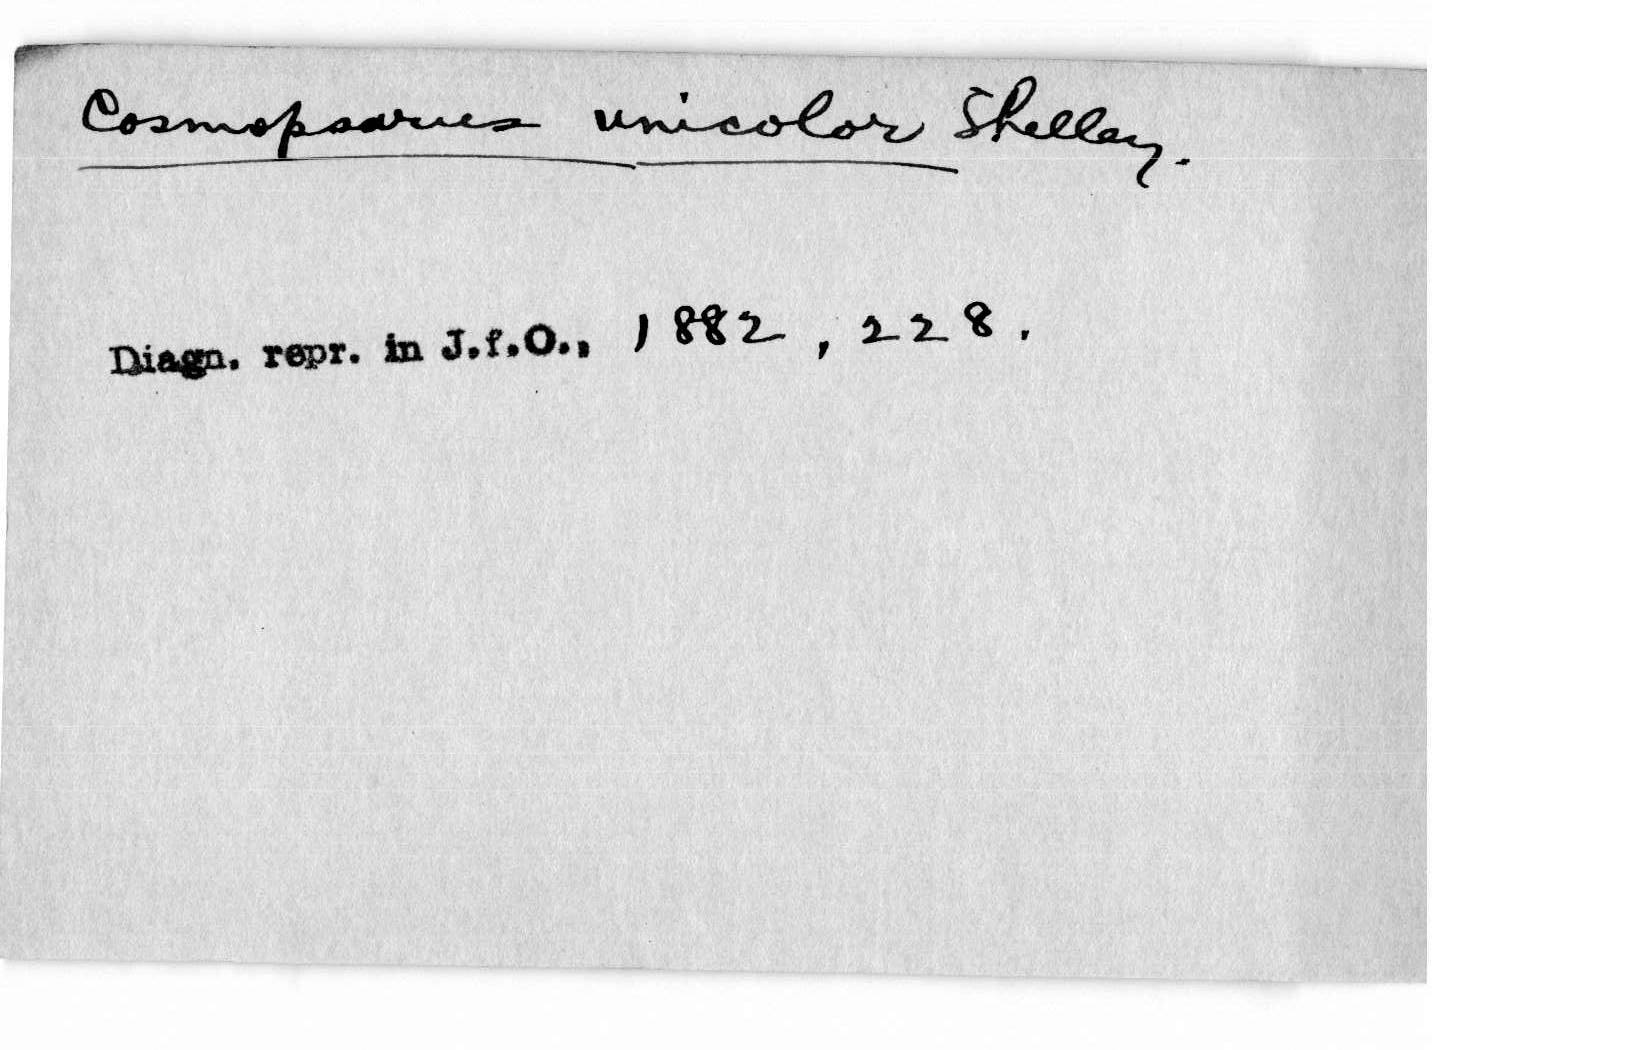 Cosmopsarus unicolor Shelley.
Diagn. repr. in J.f.O., 1882, 228.